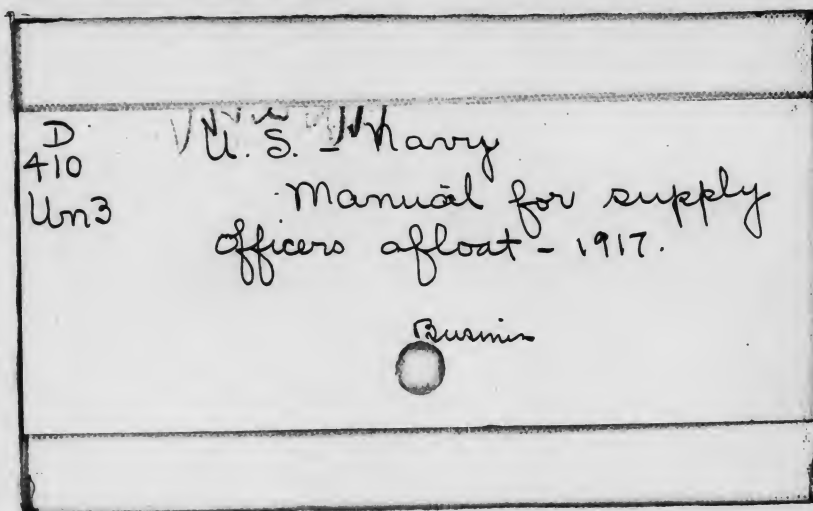 D
410
Un3
U. S. - Navy
Manual for supply
officers afloat - 1917.